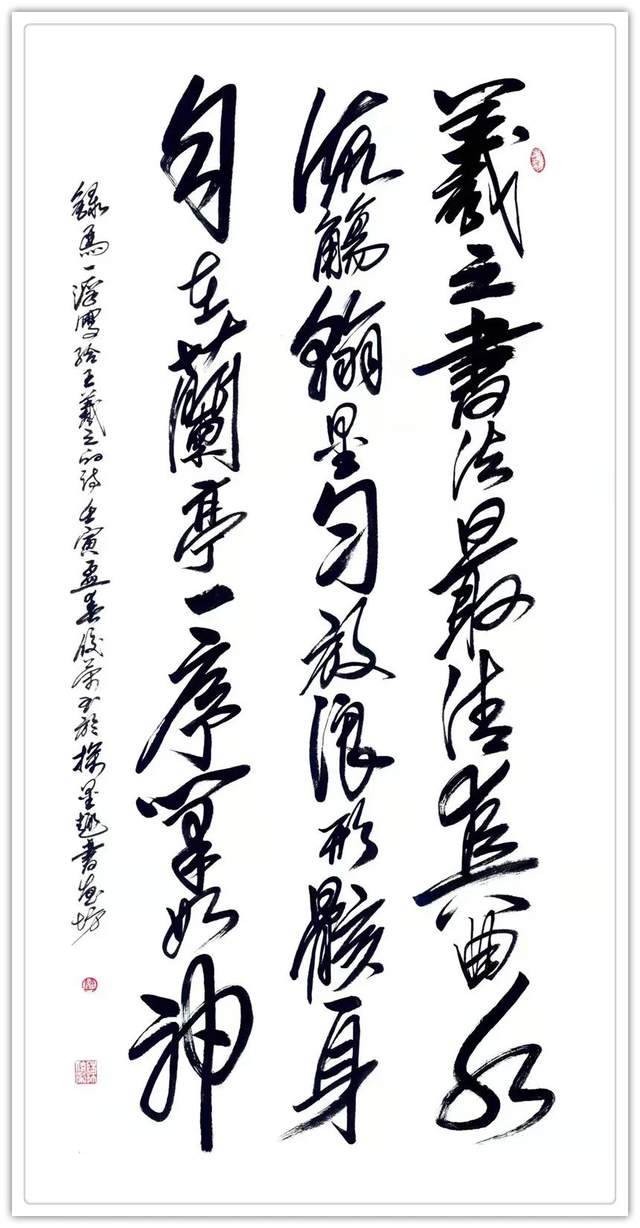 羲之書法最清真曲水
流觴翰墨勻放浪形骸身
自在蘭亭一序筆如神
錄馬一浮寫給王羲之的詩壬寅孟春書於墨趣書畫坊